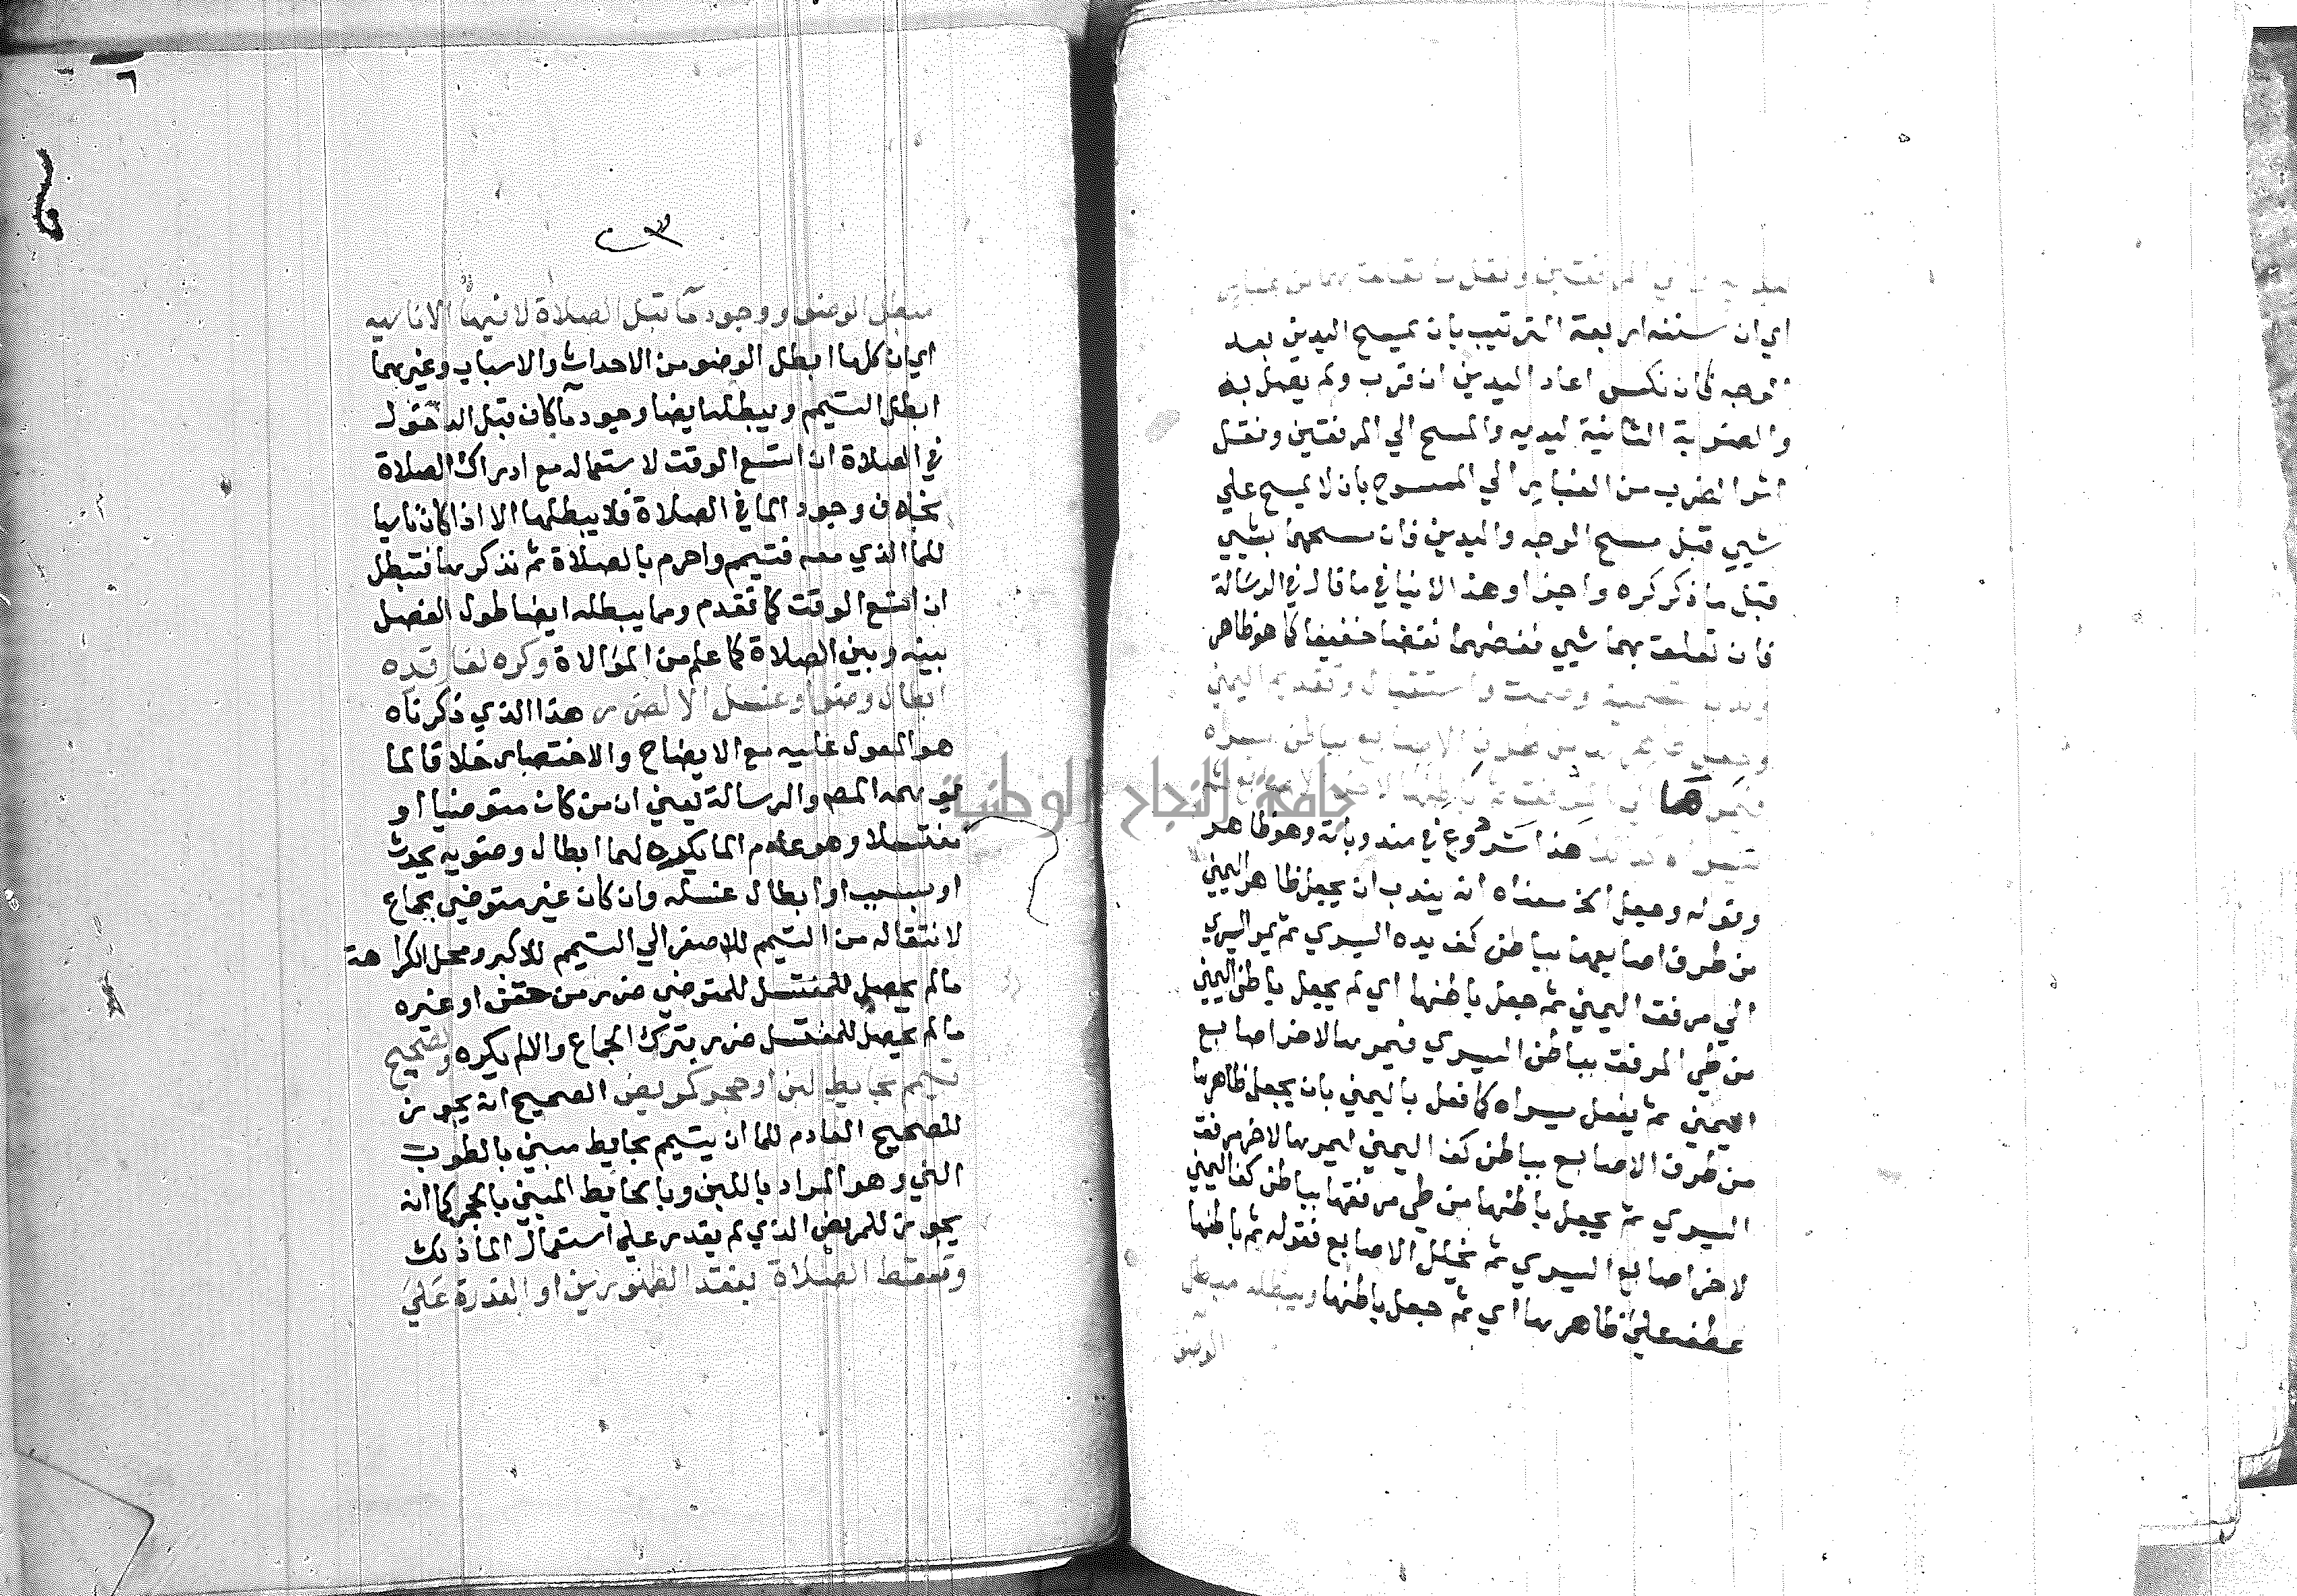 اي ان سننه اربعة الترتيب بان يمسح اليدين بعد
الوجه فان نكس اعاد اليدين ان قرب ولم يصل به
والضربة الثانية ليديه والمسح الي المرفقين ونقل
اثر الضرب من الغبار الي الممسوح بان لا يمسح علي
شيي قبل مسح الوجه واليدين فان مسحهما بشيي
قبل ما ذكر كره واجزا وهذا لا ينافي ما قال في الرسالة
فان تعلق بهما شيي نفضهما نفضا خفيفا كما هو ظاهر
وندب تسمية وصمت واستقبال وتقديم اليمني
وجعل ظاهرها من طرف الاصابع بباطن يسراه
فيمرها الي المرفق ثم باطنها لاخر الاصابع ثم
يسراه كذلك هذا شروع في مندوباته وهو ظاهر
وقوله وجعل الخ معناه انه يندب ان يجعل ظاهر اليمني
من طرف اصابعها بباطن كف يده اليسري ثم يمر اليسري
الي مرفق اليمني ثم جعل باطنها اي ثم يجعل باطن اليمني
من طي المرفق بباطن اليسري فيمرها لاخر اصابع
اليمني ثم يفعل يسراه كما فعل باليمني بان يجعل ظاهرها
من طرف الاصابع بباطن كف اليمني ليمرها لاخر مرفق
اليسري ثم يجعل باطنها من طي مرفقها بباطن كف اليمني
لاخر اصابع اليسري ثم يخلل الاصابع فقوله ثم باطنها
عطف علي ظاهرها اي ثم جعل باطنها ويبطله مبطل
الوضو
مبطل الوضو ووجود ما قبل الصلاة لا فيها الا ناسيه
اي ان كلما ابطل الوضو من الاحداث والاسباب وغيرهما
ابطل التيمم ويبطله ايضا وجود ما كان قبل الدخول
في الصلاة ان اتسع الوقت لاستعماله مع ادراك الصلاة
بخلاف وجود الما في الصلاة فلا يبطلها الا اذا كان ناسيا
للما الذي معه فتيمم واحرم بالصلاة ثم تذكرها فتبطل
ان اتسع الوقت كما تقدم ومما يبطله ايضا طول الفصل
بينه وبين الصلاة كما علم من الموالاة وكره لفاقده
ابطال وضو او غسل الا لضرر هذا الذي ذكرناه
هو المعول عليه مع الايضاح والاختصار خلافا لما
يوهمه المص والرسالة يعني ان من كان متوضيا او
مغتسلا وهو عادم الما يكره لهما ابطال وضويه بحدث
او سبب او ابطال غسله وان كان غير متوضي بجماع
لانتقاله من التيمم للاصغر الي التيمم للاكبر ومحل الكراهة
مالم يحصل للمغتسل للمتوضي ضرر من حقن او غيره
مالم يحصل للمغتسل ضرر بترك الجماع والالم يكره ولصحيح
تيمم بحايط لبن او حجر كمريض الصحيح انه يجوز
للصحيح العادم للما ان يتيمم بحايط مبني بالطوب
الني وهو المراد باللبن وبالحايط المبني بالحجر كما انه
يجوز للمريض الذي لم يقدر علي استعمال الما ذلك
وتسقط الصلاة بفقد الطهورين او القدرة علي
جامعة النجاح الوطنية